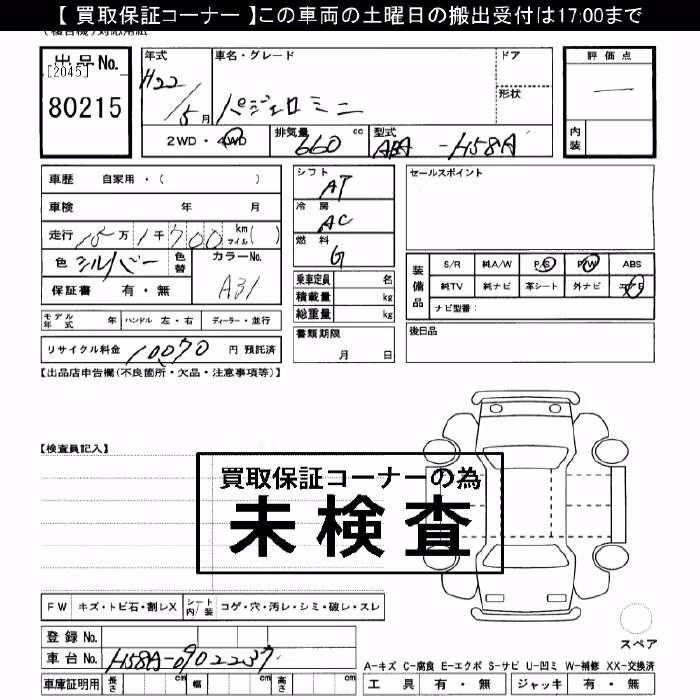 【 買取保証コーナー 】この車両の土曜日の搬出受付は17:00まで
出品No.
[2045]
80215
年式 H22/5月
車名・グレード パジェロミニ
ドア
形状
評価点
一
内装
2WD・4WD
排気量 660 cc
型式 ABA-H58A
車歴 自家用・( )
車検 年 月
走行 15万1千700 km マイル( )
色 シルバー 色替
カラーNo. A31
保証書 有・無
モデル年式 年 ハンドル 左・右 ディーラー・並行
リサイクル料金 10070 円 預託済
シフト AT
冷房 AC
燃料 G
乗車定員 名
積載量 kg
総重量 kg
書類期限
月 日
セールスポイント
装備品
S/R 純A/W P/S P/W ABS
純TV 純ナビ 革シート 外ナビ エアB
ナビ型番:
後日品
【出品店申告欄(不良箇所・欠品・注意事項等)】
【検査員記入】
買取保証コーナーの為
未検査
FW キズ・トビ石・割レX シート内/装 コゲ・穴・汚レ・シミ・破レ・スレ
スペア
登録No.
車台No. H58A-0902237
車庫証明用 長さ cm 幅 cm 高さ cm
A-キズ C-腐食 E-エクボ S-サビ U-凹ミ W-補修 XX-交換済
工具 有・無 ジャッキ 有・無